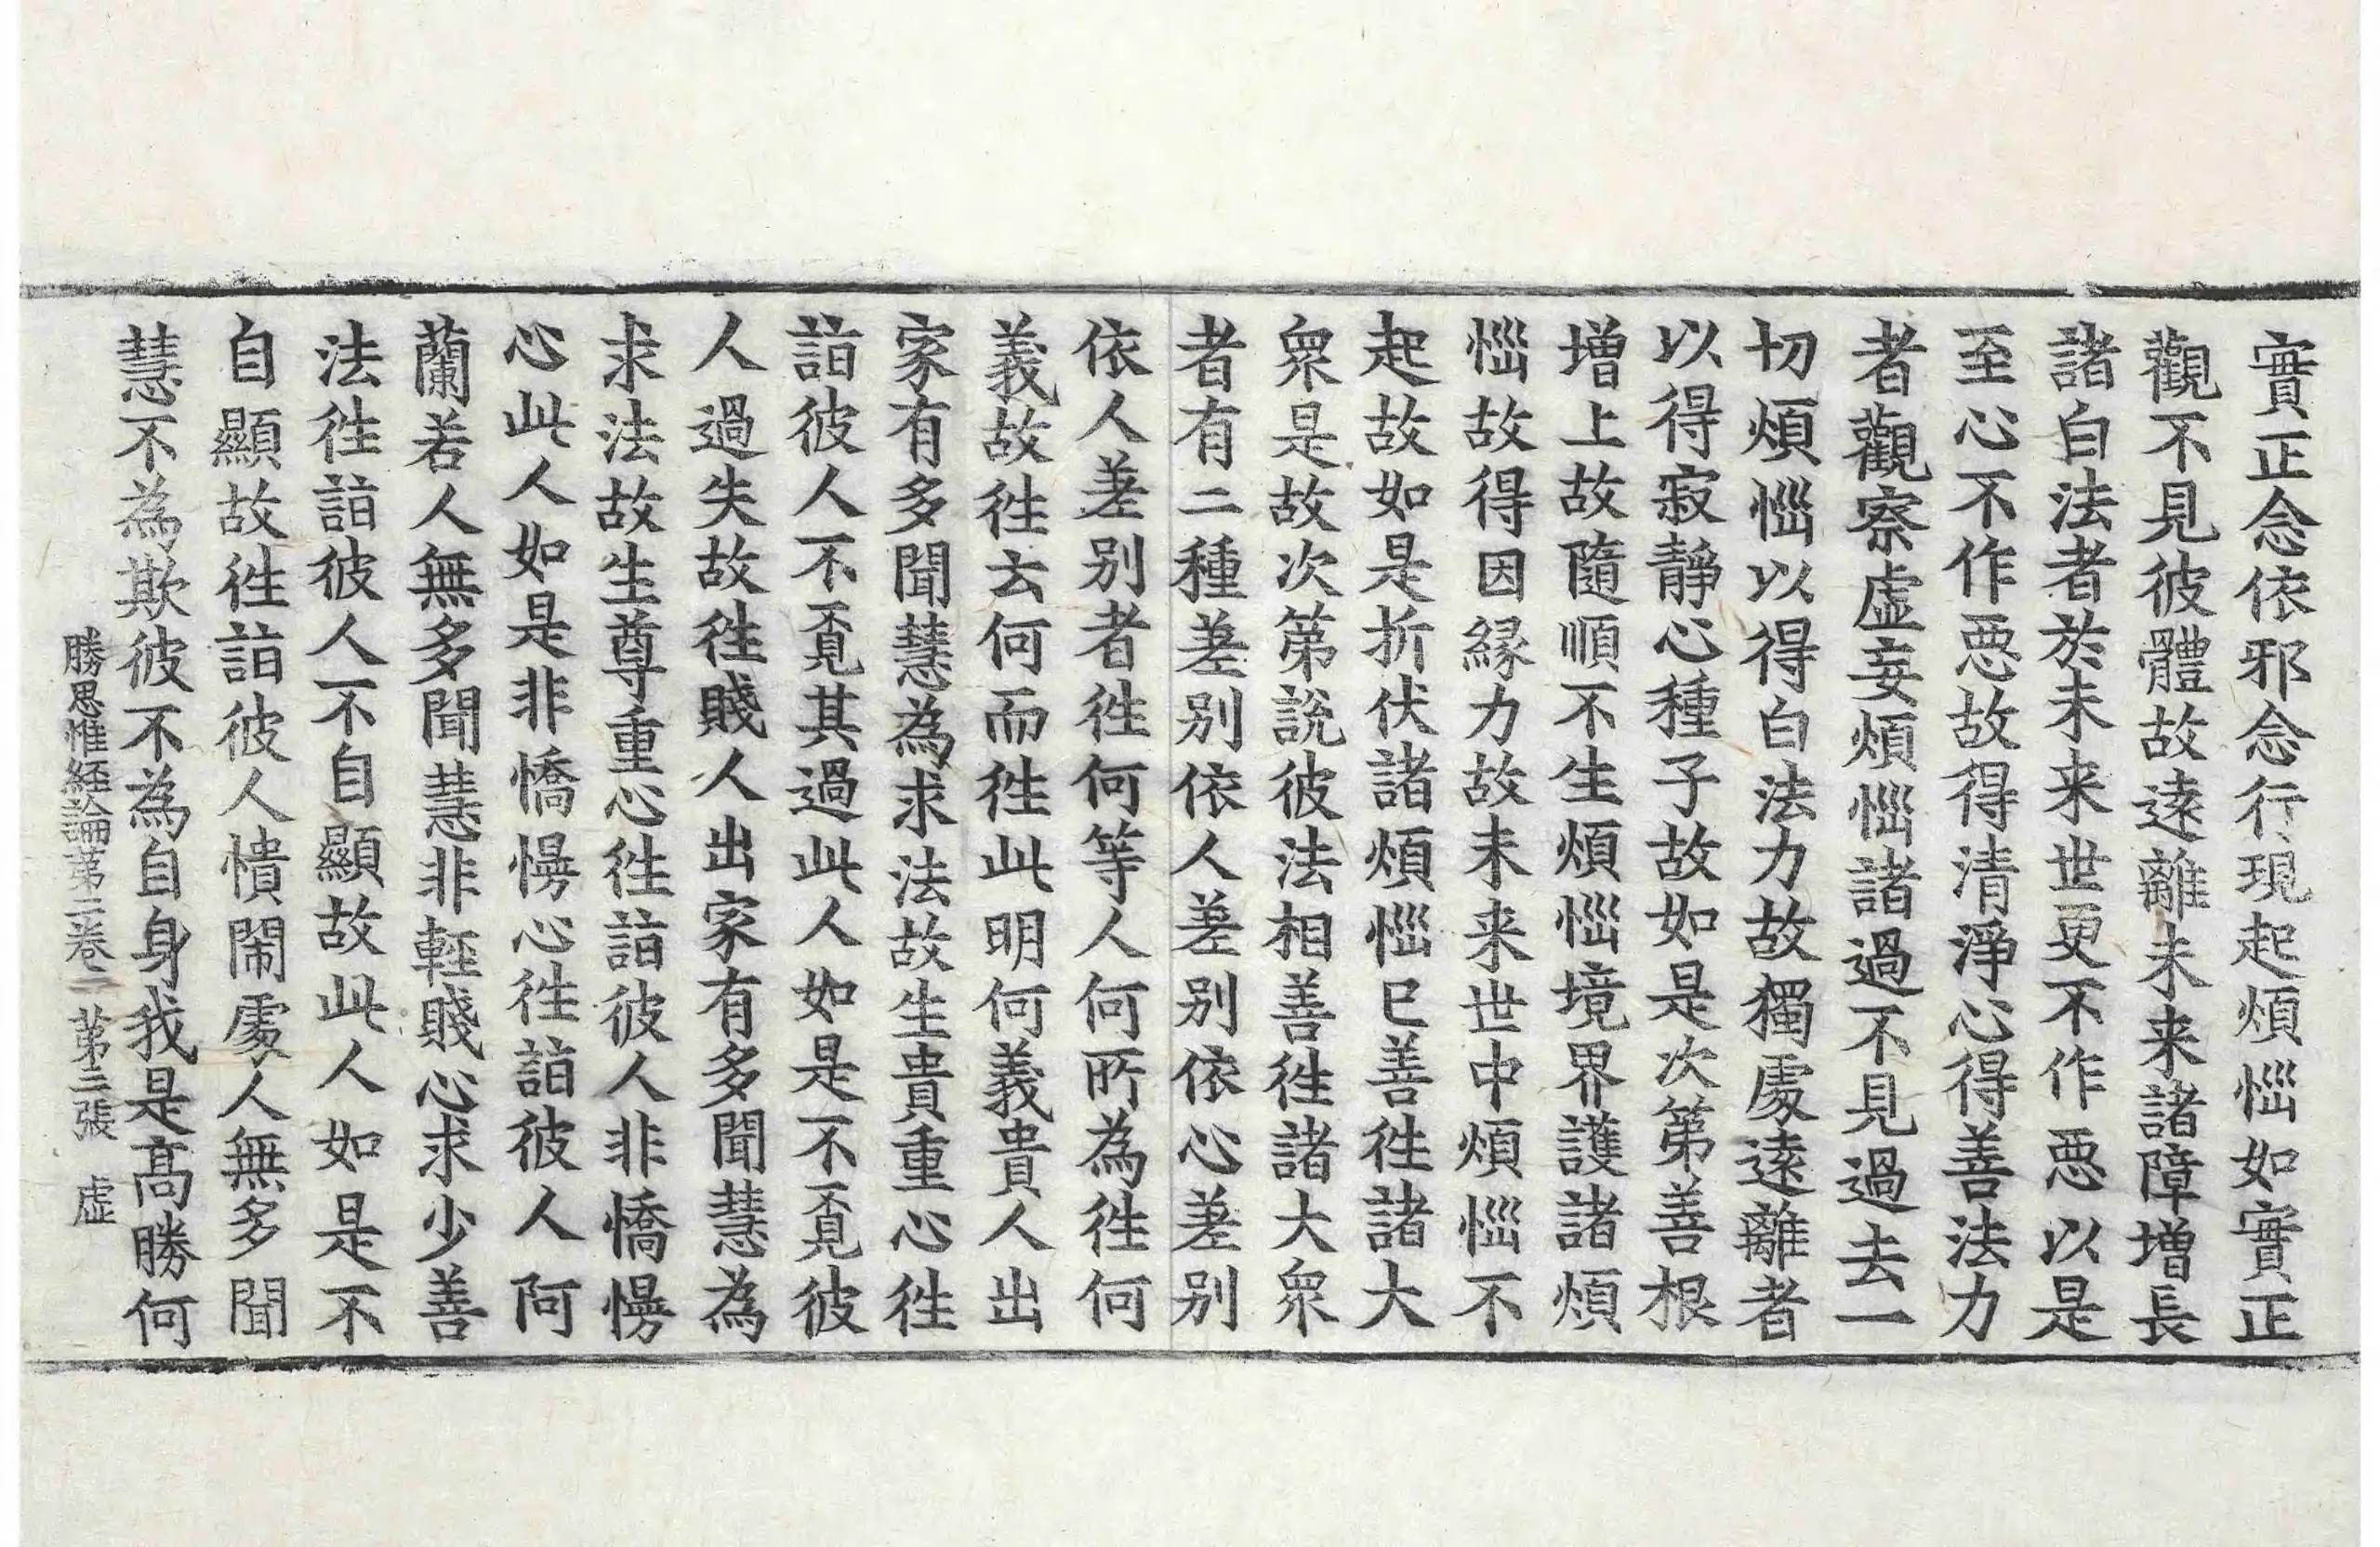 實正念依邪念行現起煩惱如實正
觀不見彼體故遠離未来諸障增長
諸白法者於未来世更不作惡以是
至心不作惡故得清淨心得善法力
者觀察虛妄煩惱諸過不見過去一
切煩惱以得白法力故獨處遠離者
以得寂靜心種子故如是次第善根
增上故隨順不生煩惱境界護諸煩
惱故得因縁力故未来世中煩惱不
起故如是折伏諸煩惱已善往諸大
衆是故次第說彼法相善往諸大衆
者有二種差別依人差別依心差別
依人差別者往何等人何所為往何
義故往云何而往此明何義貴人出
家有多聞慧為求法故生貴重心往
詣彼人不覔其過此人如是不覔彼
人過失故往賤人出家有多聞慧為
求法故生尊重心往詣彼人非憍慢
心此人如是非憍慢心往詣彼人阿
蘭若人無多聞慧非輕賤心求少善
法往詣彼人不自顯故此人如是不
自顯故往詣彼人憒閙處人無多聞
慧不為欺彼不為自身我是髙勝何
勝思惟經論第二卷 第三張 虛